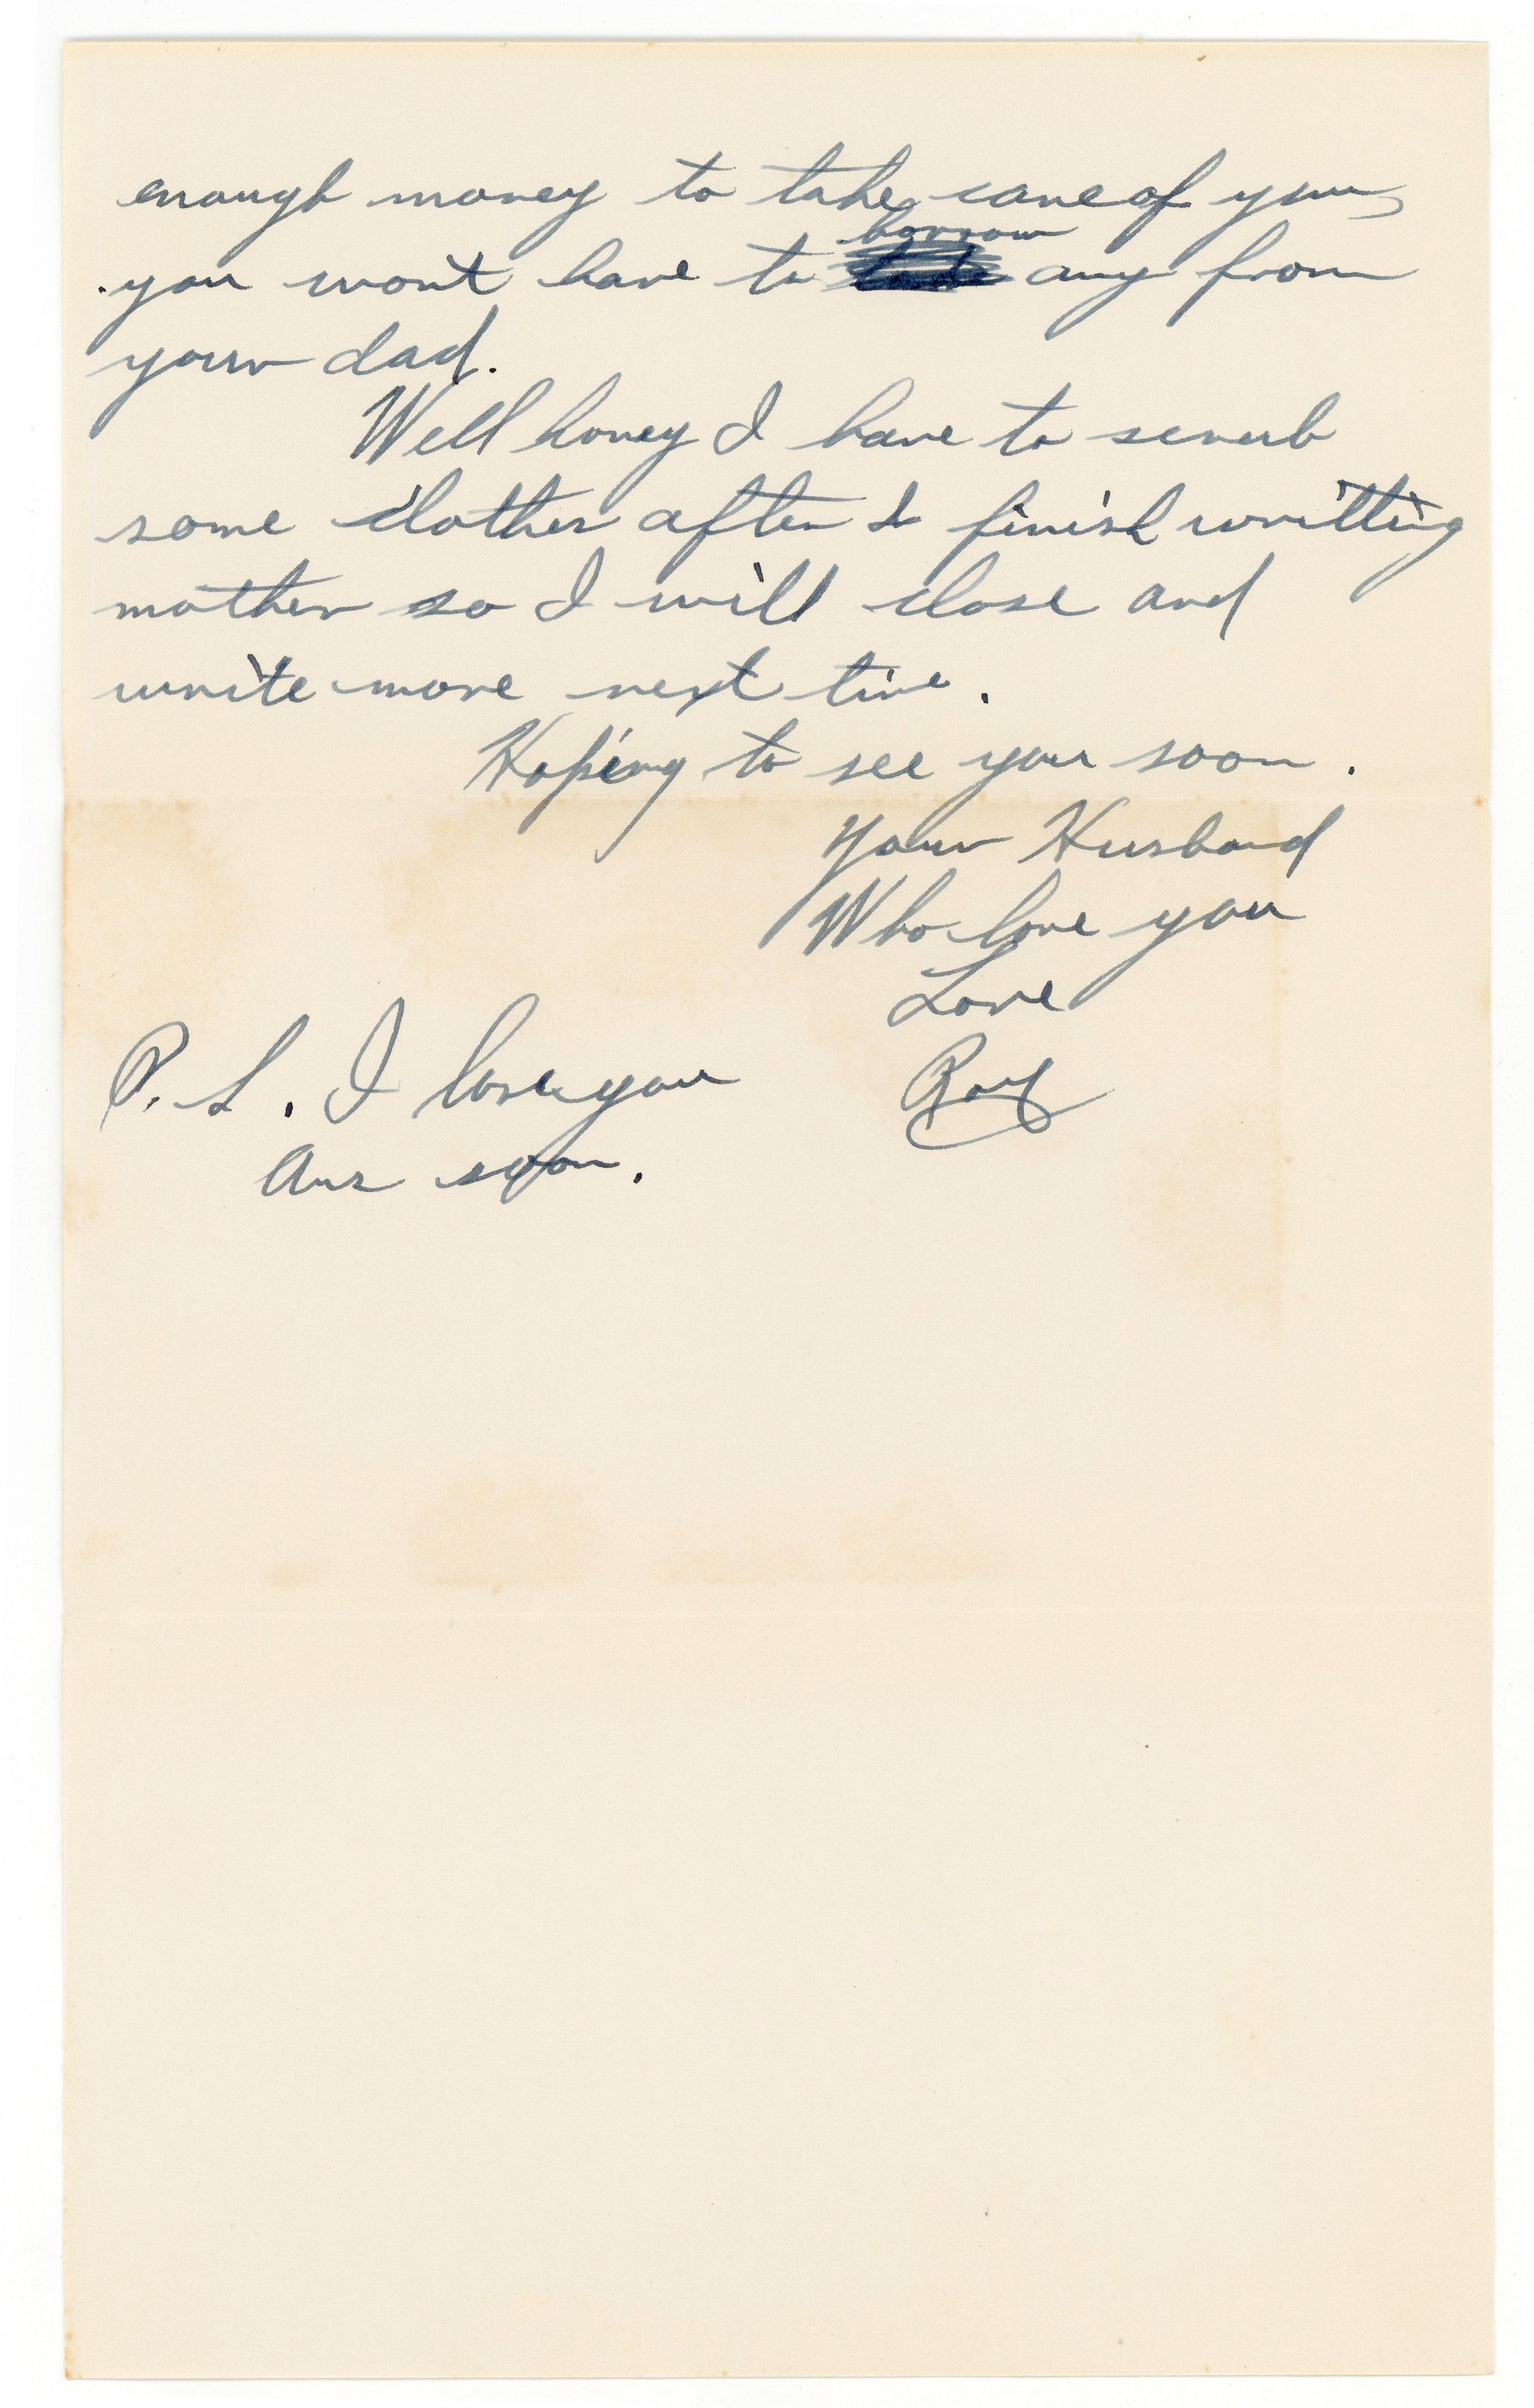 enough money to take care of you,
borrow
you won't have to any from
your dad.
Well honey I have to scrub
some clothes after I finish writting
mother so I will close and
write more next time.
Hoping to see you soon.
Your Husband
Who love you
Love
P.S. I love you Roy
Ans soon.